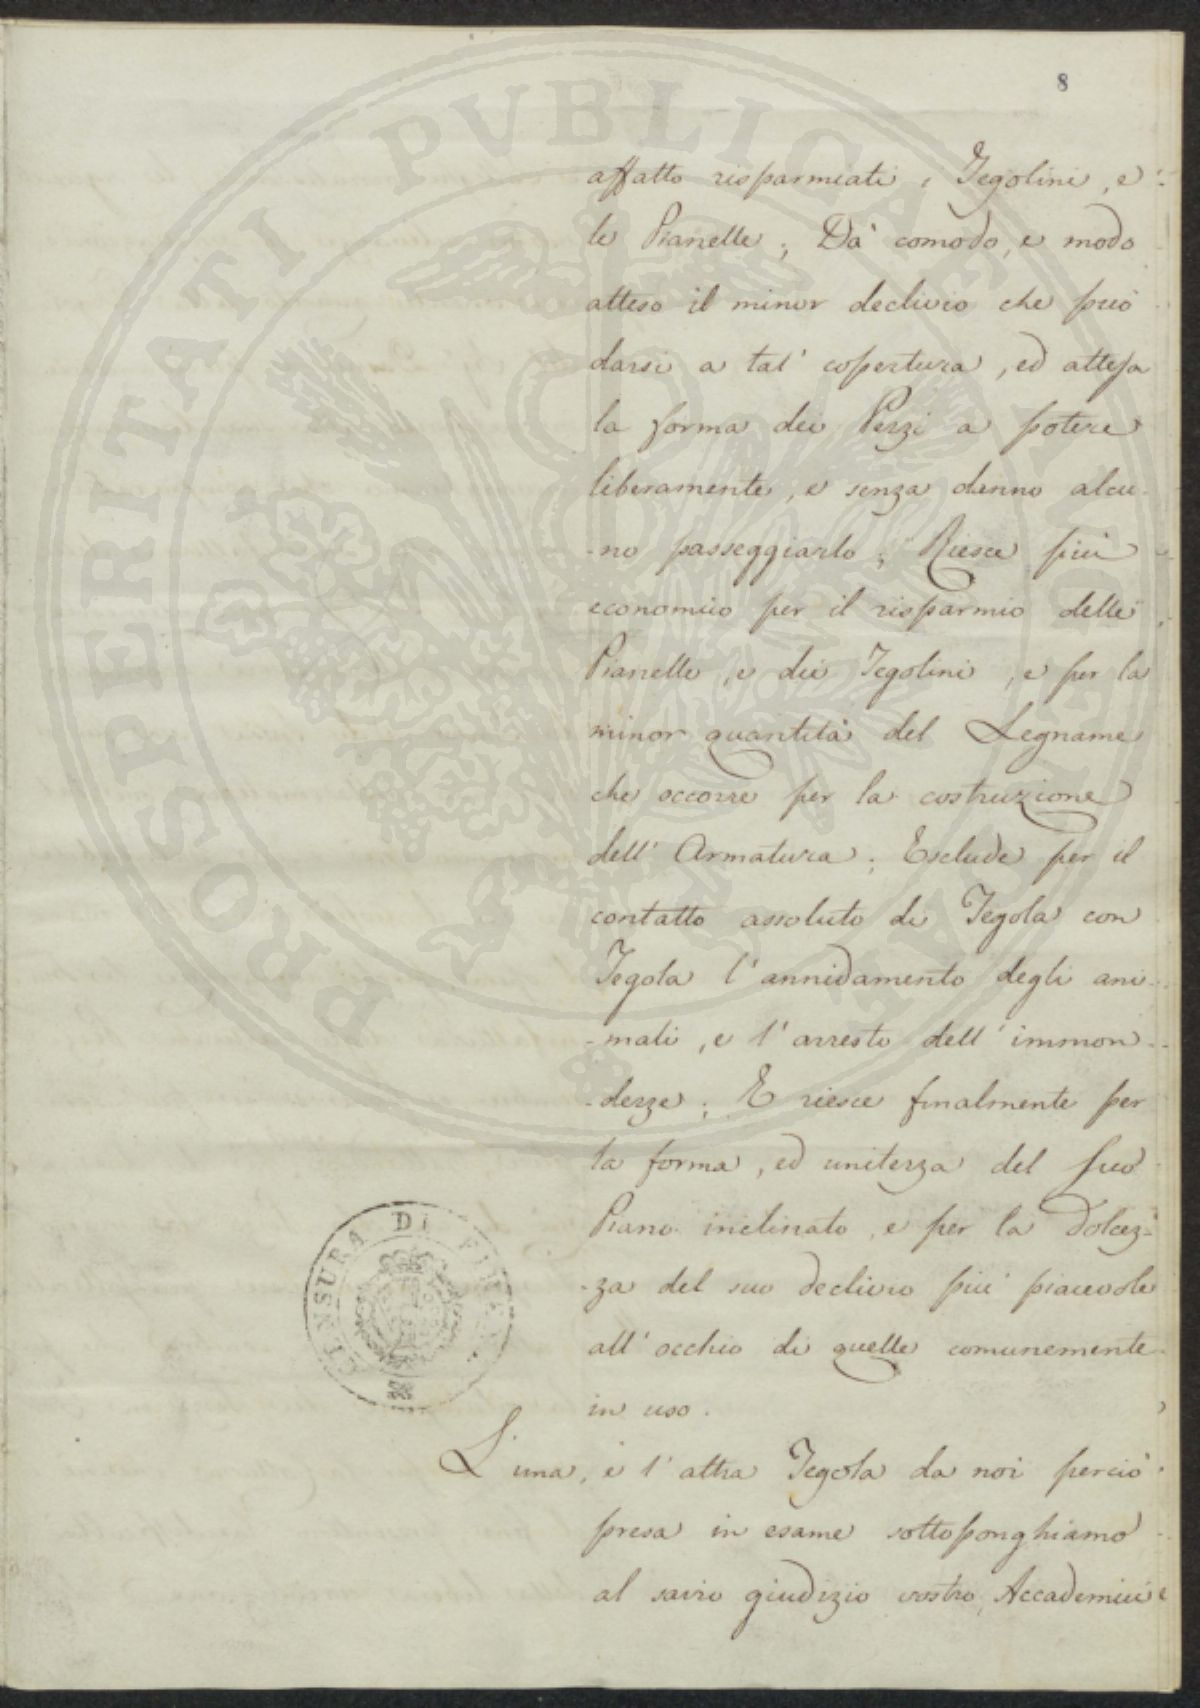 8
affatto risparmiati i Tegolini, e
le Pianelle; Dà comodo, e modo
atteso il minor declivio che può
darsi a tal' copertura, ed attesa
la forma dei Pezzi a potere
liberamente, e senza danno alcu-
-no passeggiarlo; Riesce più
economico per il risparmio delle
Pianelle, e dei Tegolini, e per la
minor quantità del Legname
che occorre per la costruzione
dell' Armatura; Esclude per il
contatto assoluto di Tegola con
Tegola l'annidamento degli ani-
-mali, e l'arresto dell' immon-
-dezze; E riesce finalmente per
la forma, ed unitezza del suo
Piano inclinato, e per la dolcez-
-za del suo declivio più piacevole
all' occhio di quelle comunemente
in uso.
L' una, e l'altra Tegola da noi perciò
presa in esame sottoponghiamo
al savio giudizio vostro, Accademici
PROSPERITATI PVBLICAE AVGENDAE
CENSURA DI